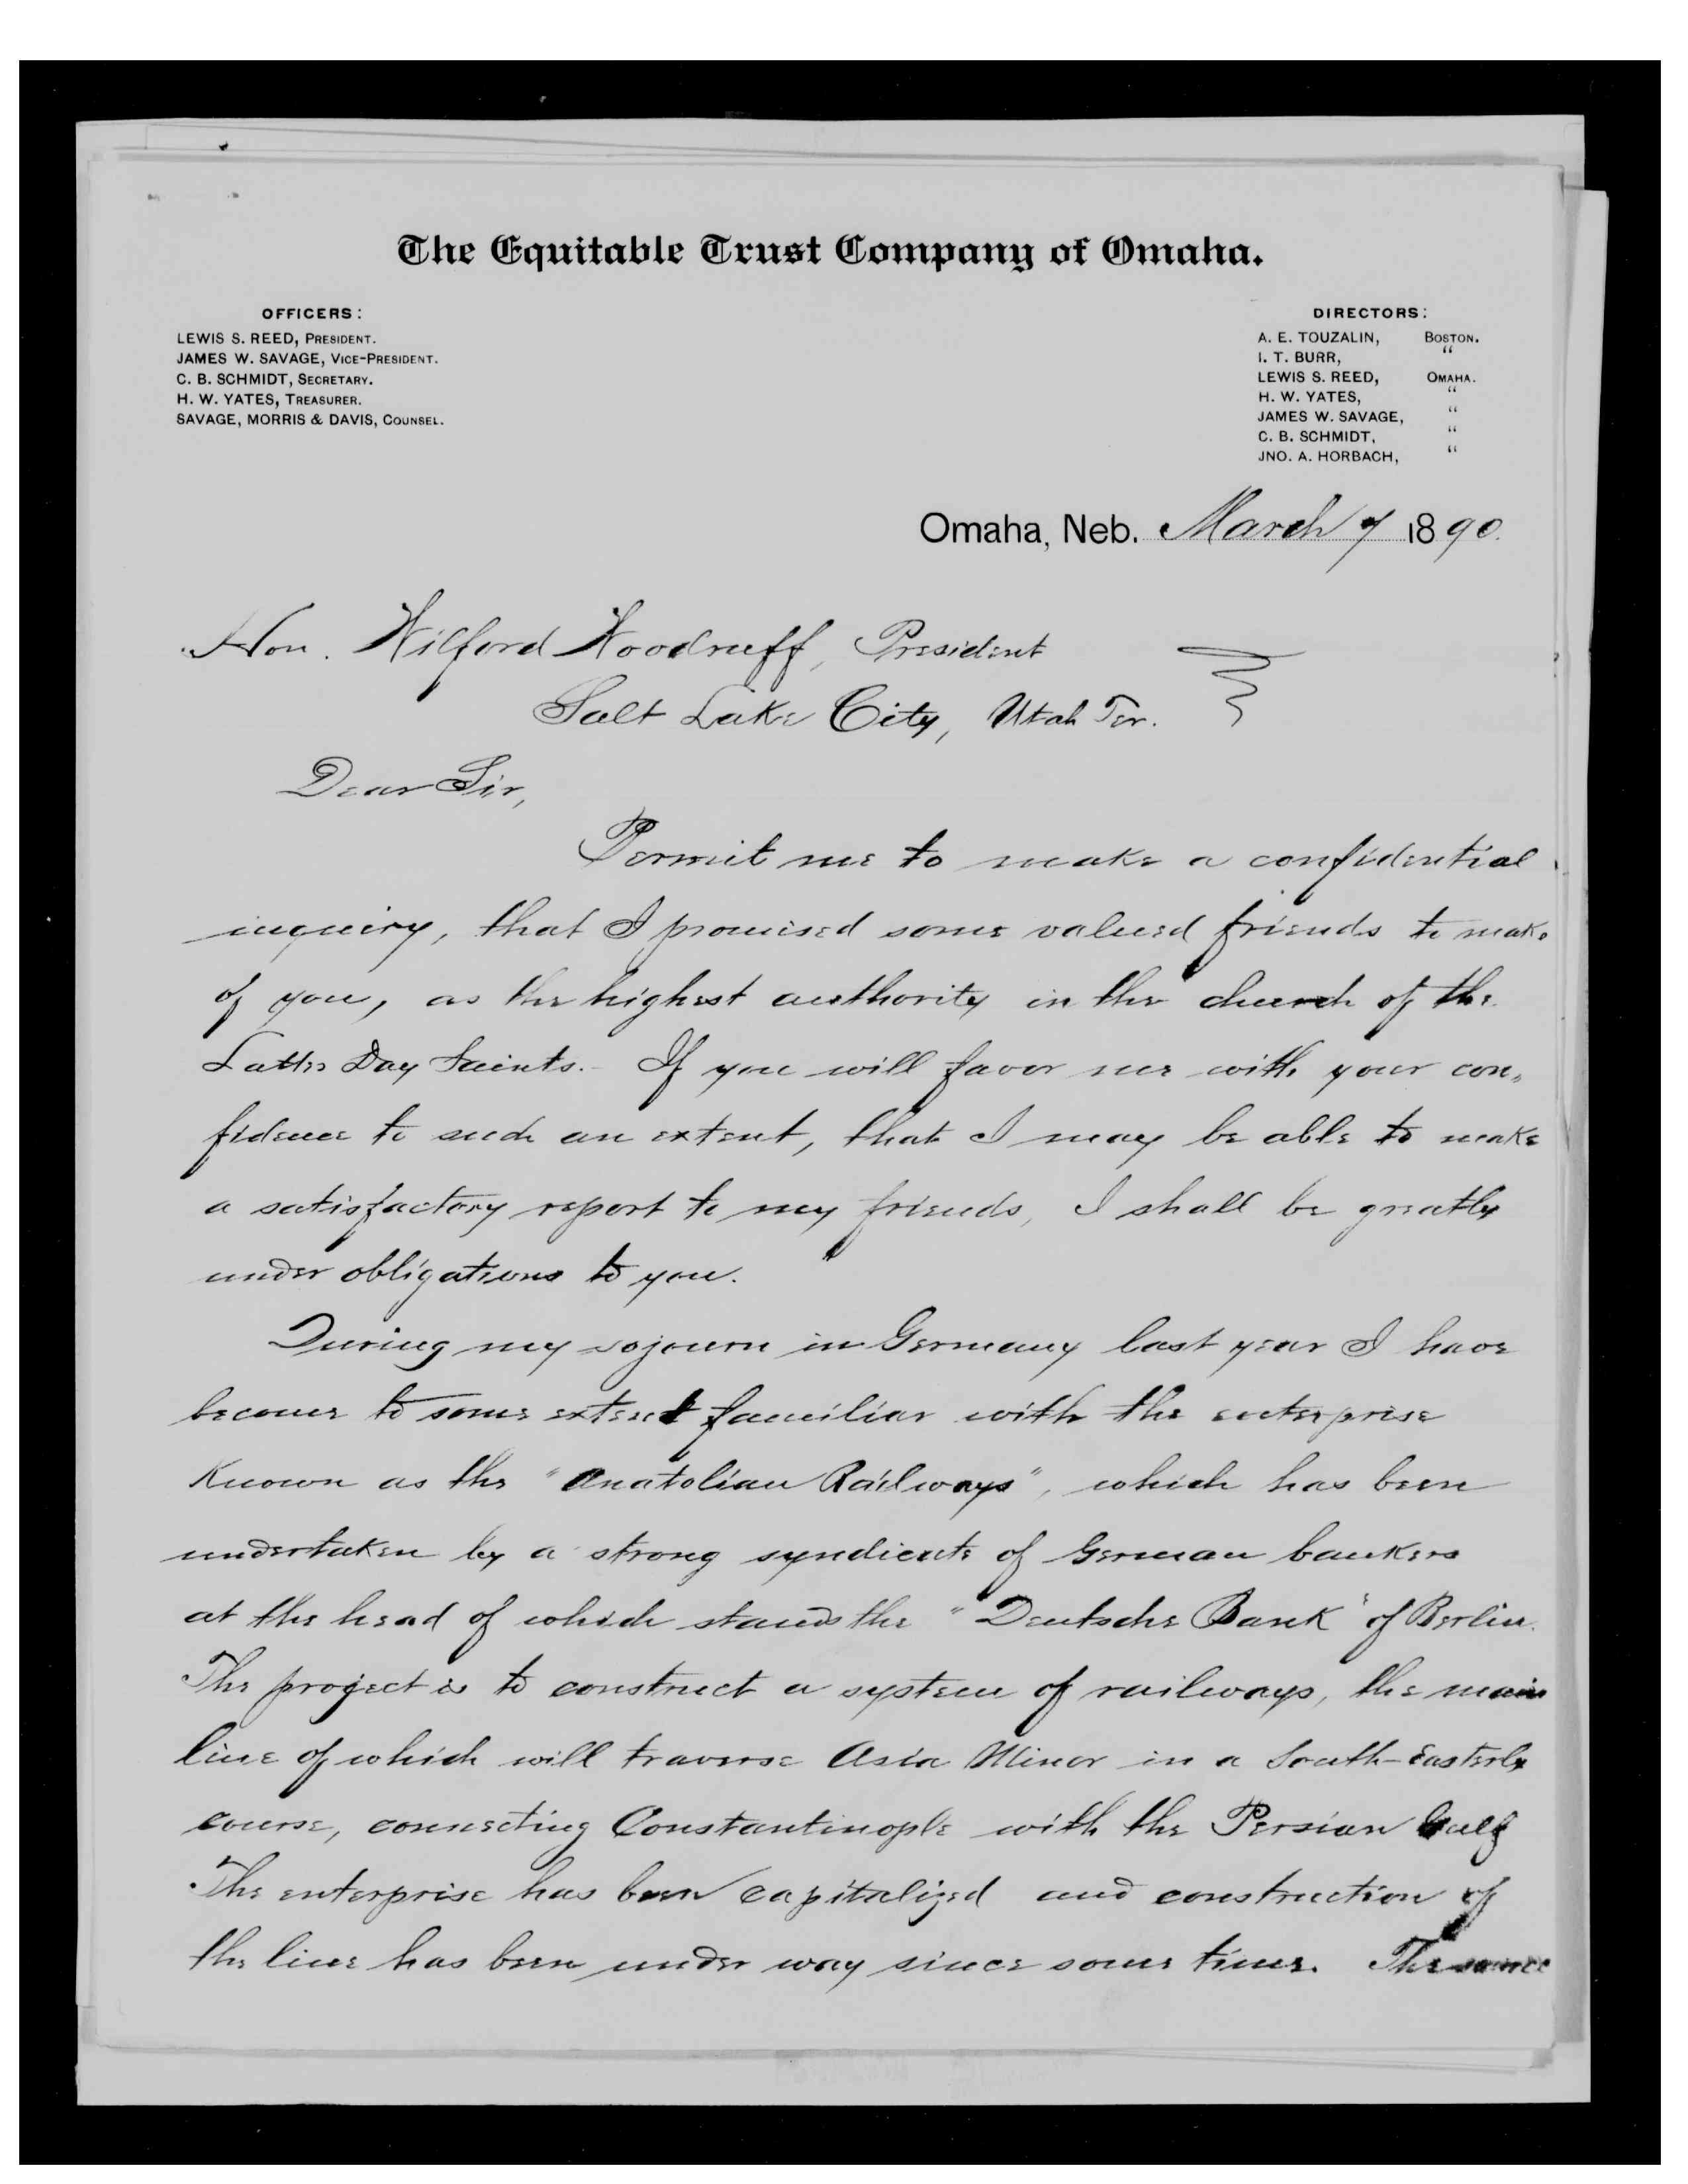 The Equitable Trust Company of Omaha.
OFFICERS:
LEWIS S. REED, PRESIDENT.
JAMES W. SAVAGE, VICE-PRESIDENT.
C. B. SCHMIDT, SECRETARY.
H. W. YATES, TREASURER.
SAVAGE, MORRIS & DAVIS, COUNSEL.
DIRECTORS:
A. E. TOUZALIN, BOSTON.
I. T. BURR, "
LEWIS S. REED, OMAHA.
H. W. YATES, "
JAMES W. SAVAGE, "
C. B. SCHMIDT, "
JNO. A. HORBACH, "
Omaha, Neb. March 7 1890.
Hon. Wilford Woodruff, President
Salt Lake City, Utah Ter.
Dear Sir,
Permit me to make a confidential
inquiry, that I promised some valued friends to make
of you, as the highest authority in the church of the
Latter Day Saints.- If you will favor me with your con„
fidence to such an extent, that I may be able to make
a satisfactory report to my friends, I shall be greatly
under obligations to you.
During my sojourn in Germany last year I have
become to some extent familiar with the enterprise
known as the "Anatolian Railways", which has been
undertaken by a strong syndicate of German bankers
at the head of which stands the "Deutsche Bank" of Berlin.
The project is to construct a system of railways, the main
line of which will traverse Asia Minor in a South-Easterly
course, connecting Constantinople with the Persian Gulf
The enterprise has been capitalized and construction of
the line has been under way since some time. The same